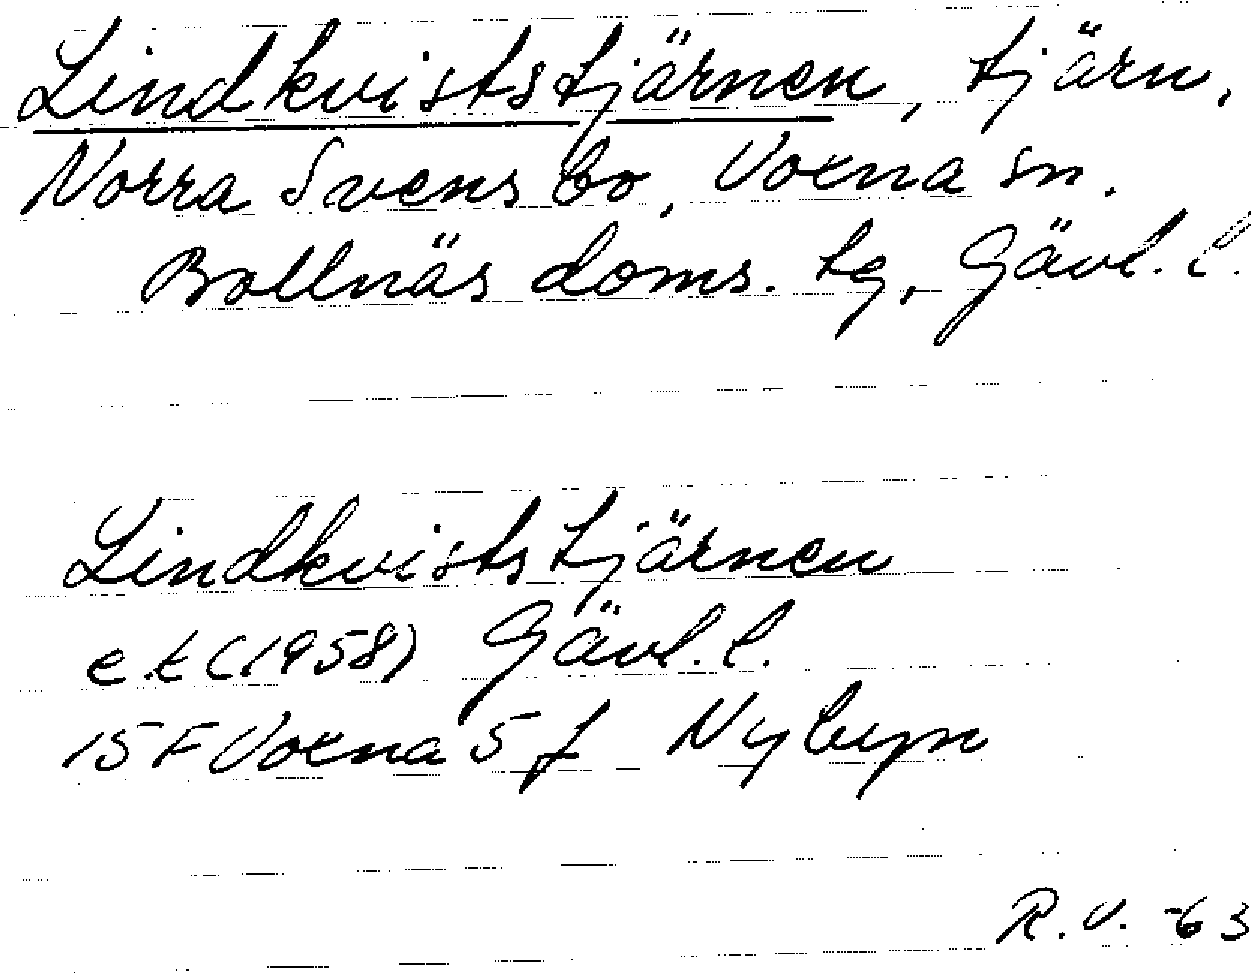 Lindkviststjärnen, tjärn,
Norra Svensbo, Voxna sn.
Bollnäs doms. tg, Gävl. l.
Lindkviststjärnen
e.k (1958) Gävl. l.
15 F Voxna 5 f Nybyn
R.V. -63